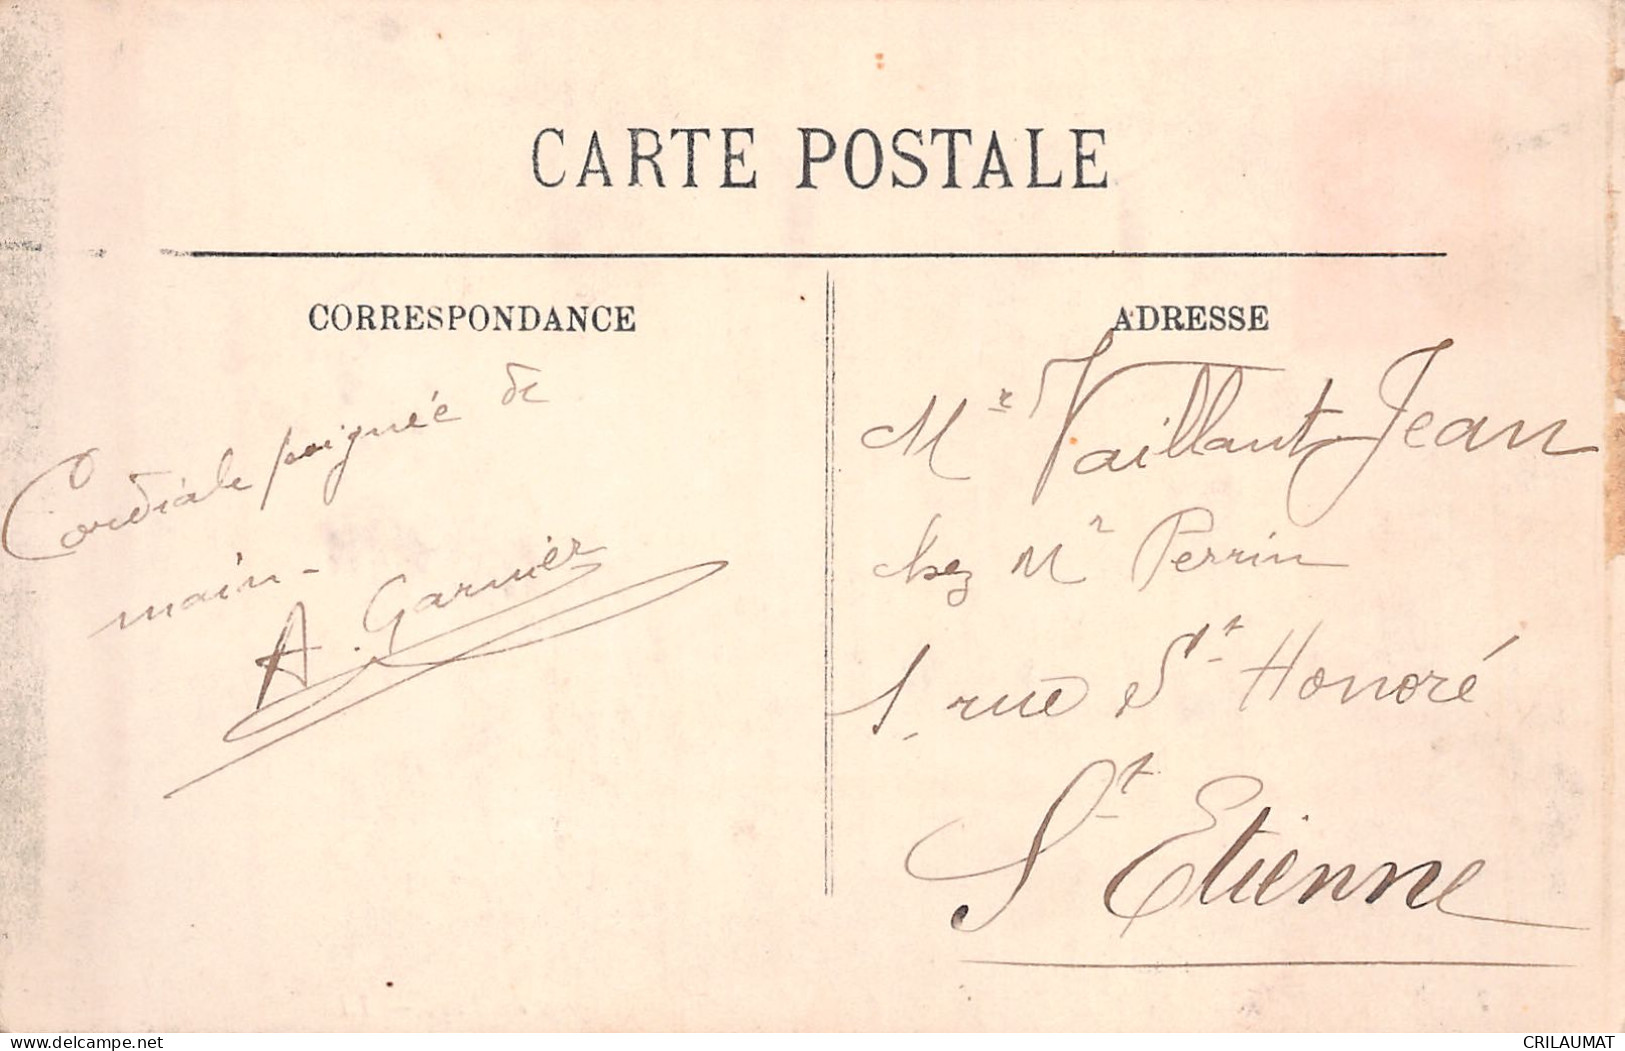 CARTE POSTALE
CORRESPONDANCE
Cordiale poignée de
main -
A. Garnier
ADRESSE
Mr Vaillant Jean
chez Mr Perrin
1, rue St Honoré
St Etienne
delcampe.net
CRILAUMAT